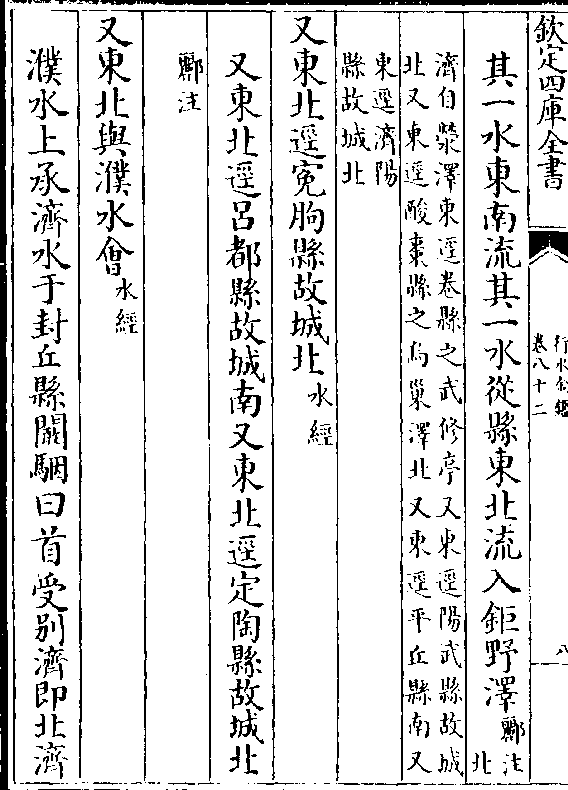 欽定四庫全書
行水金鑑
卷八十二
八
其一水東南流其一水從縣東北流入鉅野澤
酈注
北
濟自滎澤東逕卷縣之武修亭又東逕陽武縣故城
北又東逕酸棗縣之烏巢澤北又東逕平丘縣南又
東逕濟陽
縣故城北
又東北逕寃朐縣故城北水經
又東北逕呂都縣故城南又東北逕定陶縣故城北
酈注
又東北與濮水會水經
濮水上承濟水于封丘縣闞駰曰首受别濟即北濟